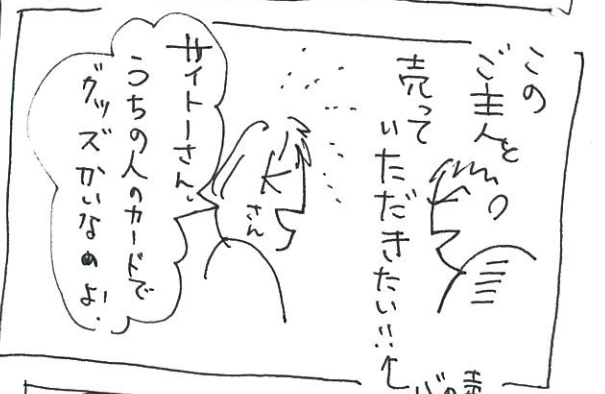 この
ご主人と
売って
いただきたい!!
Kさん
サイトーさん、
うちの人のカードで
グッズかいなのよ!